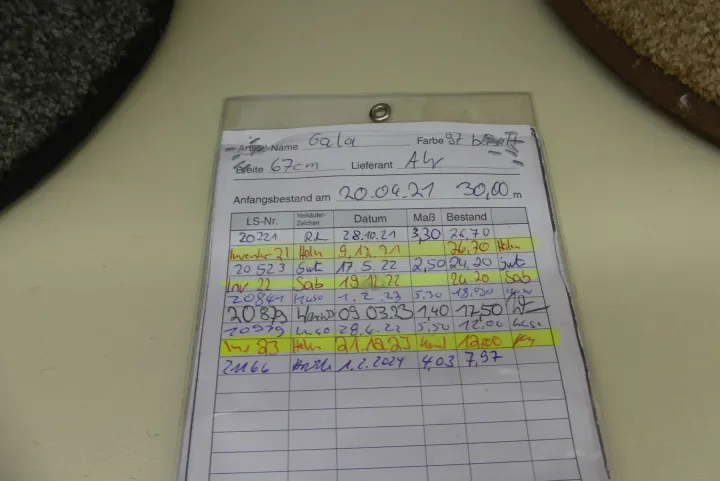 Artikel-Name Gala Farbe 97
Breite 67cm Lieferant
Anfangsbestand am 20.04.21 30,00 m
LS-Nr. Verkäufer-Zeichen Datum Maß Bestand
20221 28.10.21 3,30 26,70
21 Hahn 9.12.21 26.70 Hahn
20523 Gut 17.5.22 2,50 24,20 Gut
Inv 22 Sab 19.12.22 24.20 Sab
20841 1.2.23 5,30 18.90
20879 09.03.23 1,40 17,50
20979 5,50 12,00
Inv 23 Hahn 21.12.23 12,00
21166 1.2.2024 4,03 7,97